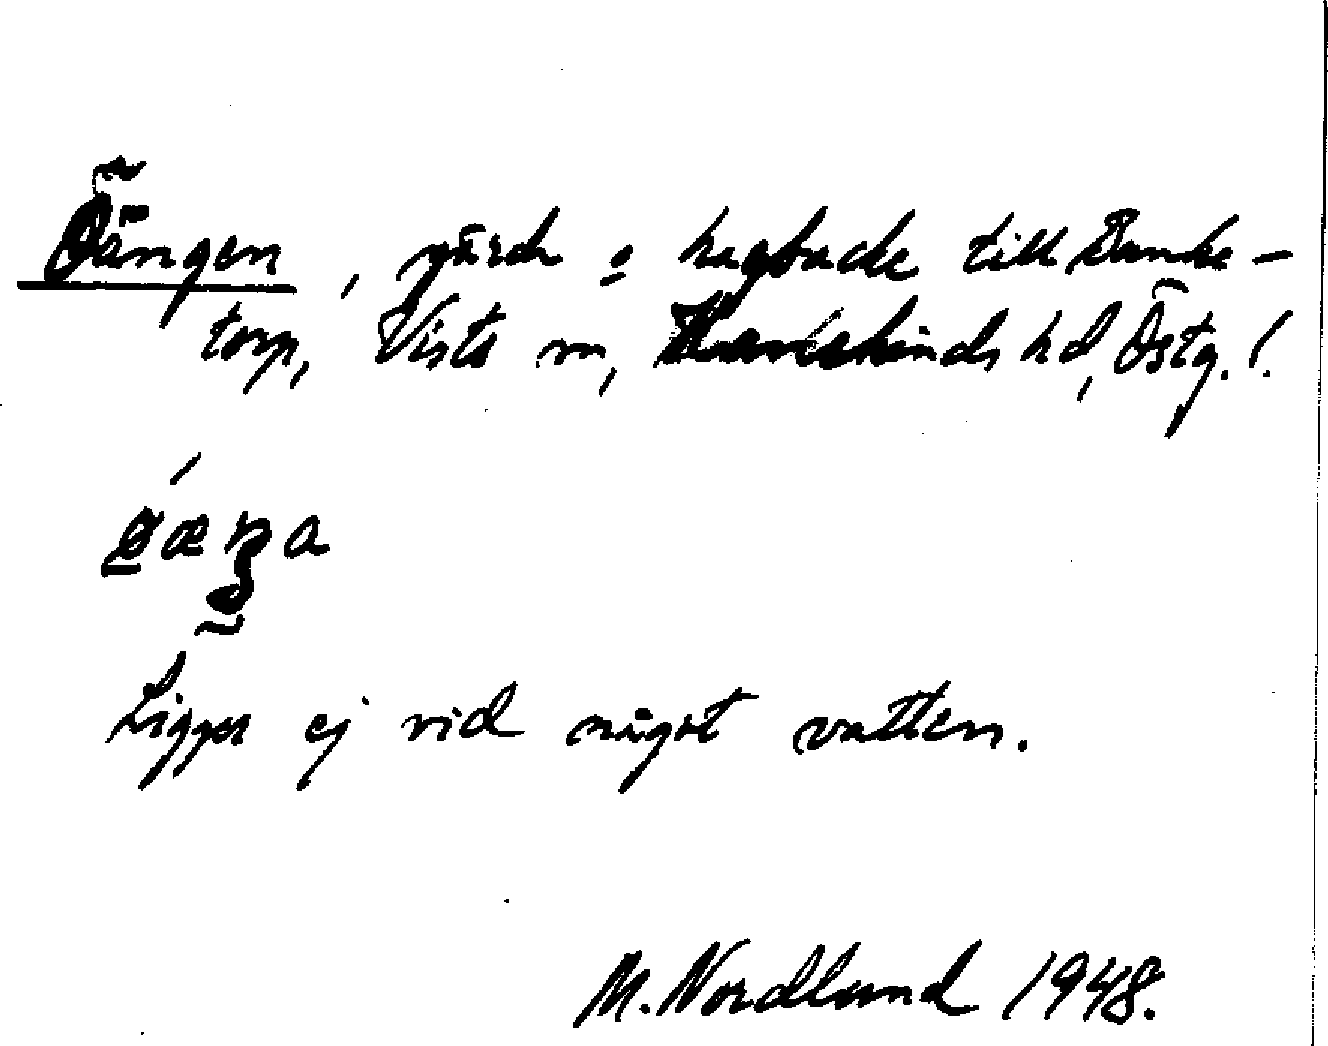 Öängen, gärde o hagbacke till Banke-
torp, Vists sn, Hanekinds hd, Östg. l.
Ligger ej vid något vatten.
M. Nordlund 1948.